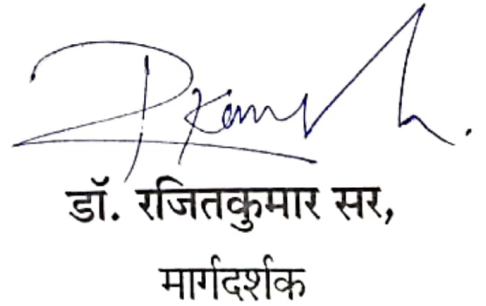 डॉ. रजितकुमार सर,
मार्गदर्शक